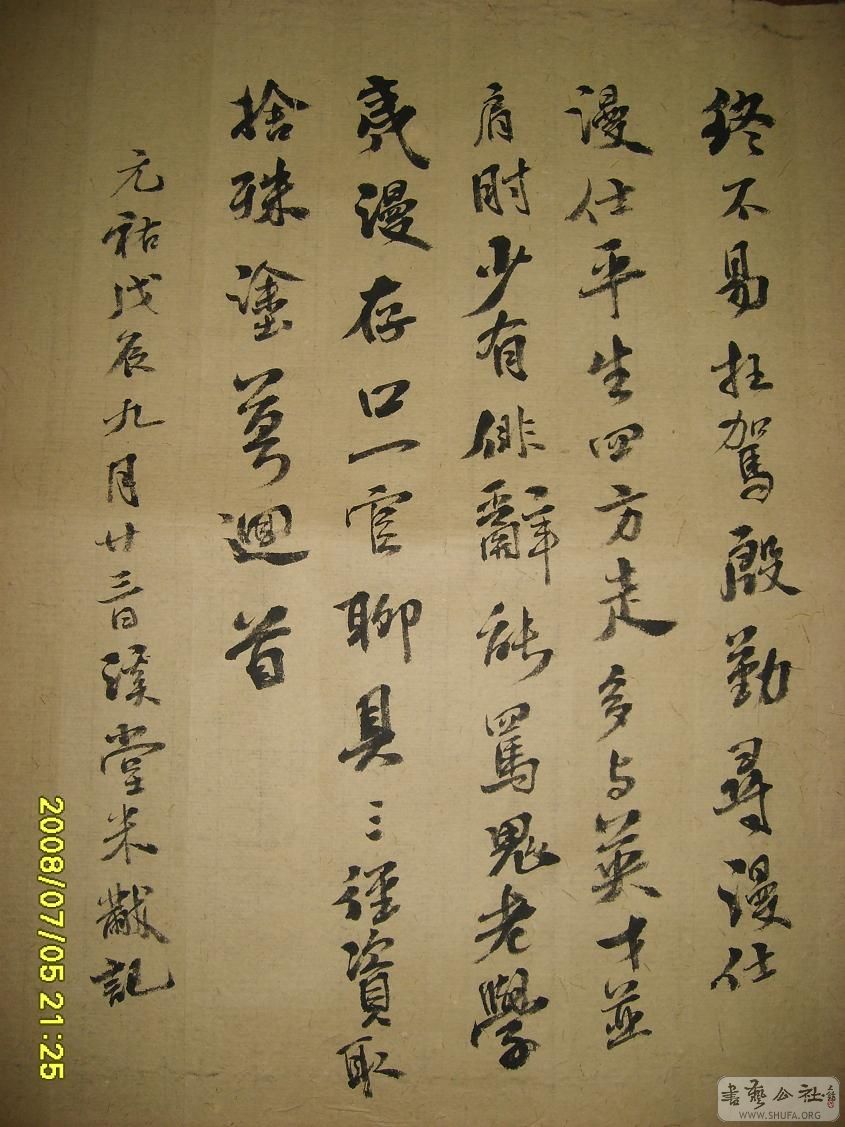 終不易枉駕殷勤尋漫仕
漫仕平生四方走多与英才並
肩肘少有俳辭能罵鬼老學
漫存口一官聊具三徑資取
捨殊塗莫迴首
元祐戊辰九月廿三日溪堂米黻記
2008/07/05 21:25
書藝公社
WWW.SHUFA.ORG